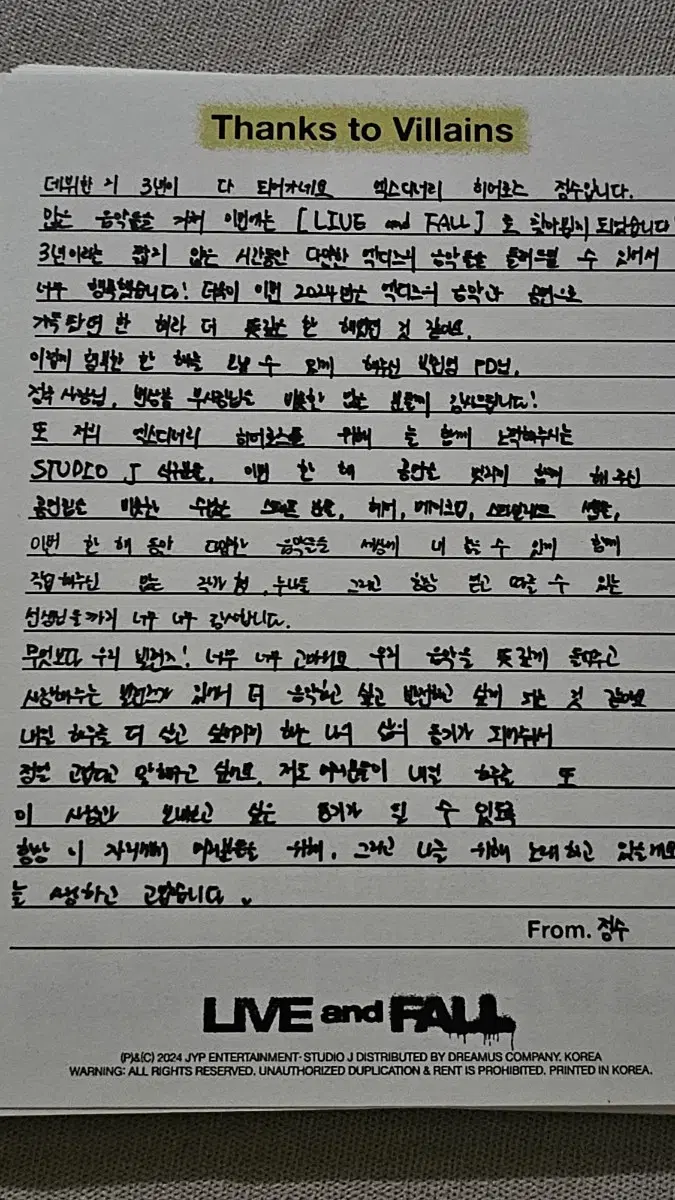 Thanks to Villains
데뷔한 지 3년이 다 되어가네요 엑스디너리 히어로즈 정수입니다.
많은 음악들을 거쳐 이번에는 [LIVE and FALL] 로 찾아뵙게 되었습니다!
3년이라는 짧지 않은 시간동안 다양한 엑디즈의 음악들을 들려드릴 수 있어서
너무 행복했습니다! 더욱이 이번 2024년은 엑디즈의 음악과 공연으로
가득 찼던 한 해라 더 뜻깊은 한 해였던 것 같아요.
이렇게 행복한 한 해를 보낼 수 있게 해주신 박진영 PD님,
정욱 사장님, 변상봉 부사장님을 비롯한 많은 분들께 감사드립니다!
또 저희 엑스디너리 히어로즈를 위해 늘 함께 노력해주시는
STUDIO J 식구분들, 이번 한 해 공연을 멋지게 함께 해주신
공연팀을 비롯한 수많은 스태프 분들, 헤어, 메이크업, 스타일리스트 쌤들,
이번 한 해 동안 다양한 음악들을 세상에 내 놓을 수 있게 함께
작업해주신 많은 작가 형, 누나들 그리고 항상 믿고 따를 수 있는
선생님들까지 너무 너무 감사합니다.
무엇보다 우리 빌런즈! 너무 너무 고마워요 우리 음악을 뜻깊게 들어주고
사랑해주는 빌런즈가 있어서 더 음악하고 싶고 발전하고 싶게 되는 것 같아요
내일 하루를 더 살고 싶어지게 하는 나의 삶의 용기가 되어줘서
정말 고맙다고 말해주고 싶어요. 저도 여러분들이 내일 하루를 또
이 사람과 보내보고 싶은 용기가 될 수 있도록
항상 이 자리에서 여러분들을 위해, 그리고 나를 위해 노래하고 있을게요
늘 생각하고 고맙습니다
From. 정수
LIVE and FALL
(P)&(C) 2024 JYP ENTERTAINMENT· STUDIO J DISTRIBUTED BY DREAMUS COMPANY. KOREA
WARNING: ALL RIGHTS RESERVED. UNAUTHORIZED DUPLICATION & RENT IS PROHIBITED. PRINTED IN KOREA.